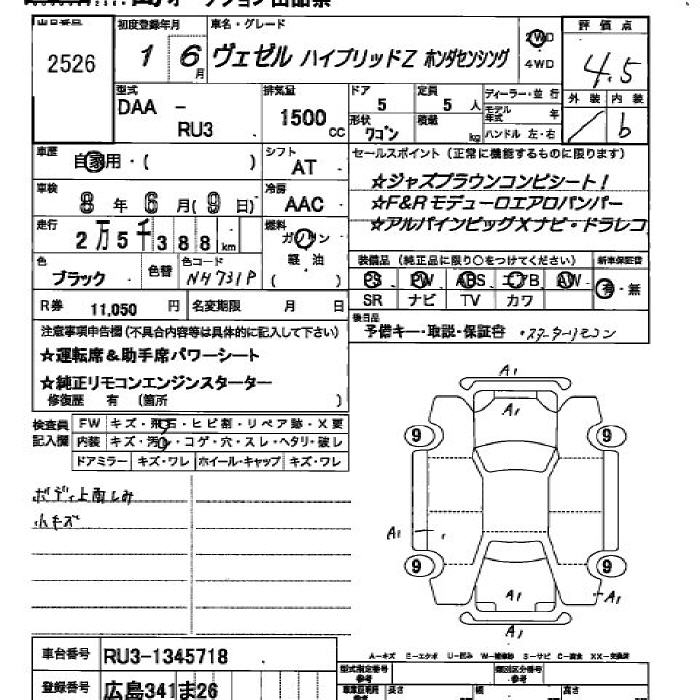 オークション出品票
出品番号 初度登録年月 車名・グレード 評価点
2526 1 6月 ヴェゼル ハイブリッドZ ホンダセンシング 2WD 4WD 4.5
型式 排気量 ドア 定員 ディーラー・並行 外装 内装
DAA - RU3 1500cc 5 5人 モデル年式 年 / b
形状 積載 ハンドル 左・右
ワゴン kg
車歴 自家用・( ) シフト AT セールスポイント(正常に機能するものに限ります)
車検 8年6月(9日) 冷房 AAC ☆ジャズブラウンコンビシート!
☆F&Rモデューロエアロバンパー
走行 2万5千388km 燃料 ガソリン 軽油 ( ) ☆アルパインビッグXナビ・ドラレコ
色 ブラック 色替 色コード NH731P 装備品(純正品に限り○をつけてください) 新車保証書
PS PW ABS エアB AW 有・無
SR ナビ TV カワ
R券 11,050円 名変期限 月 日 後日品
予備キー・取説・保証書・スターターリモコン
注意事項申告欄(不具合内容等は具体的に記入して下さい)
☆運転席&助手席パワーシート
☆純正リモコンエンジンスターター
修復歴 有(箇所 )
検査員記入欄 FW キズ・飛石・ヒビ割・リペア跡・X要
内装 キズ・汚れ・コゲ・穴・スレ・ヘタリ・破レ
ドアミラー キズ・ワレ ホイール・キャップ キズ・ワレ
ボディ上雨しみ
小キズ
A1
A1
9 9
A1
9 9
A1 A1
A1
A-キズ E-エクボ U-凹み W-補修跡 S-サビ C-腐食 XX-交換済
車台番号 RU3-1345718 型式指定番号 参考 類別区分番号 参考
登録番号 広島341ま26 車庫証明用 参考 長さ 幅 高さ